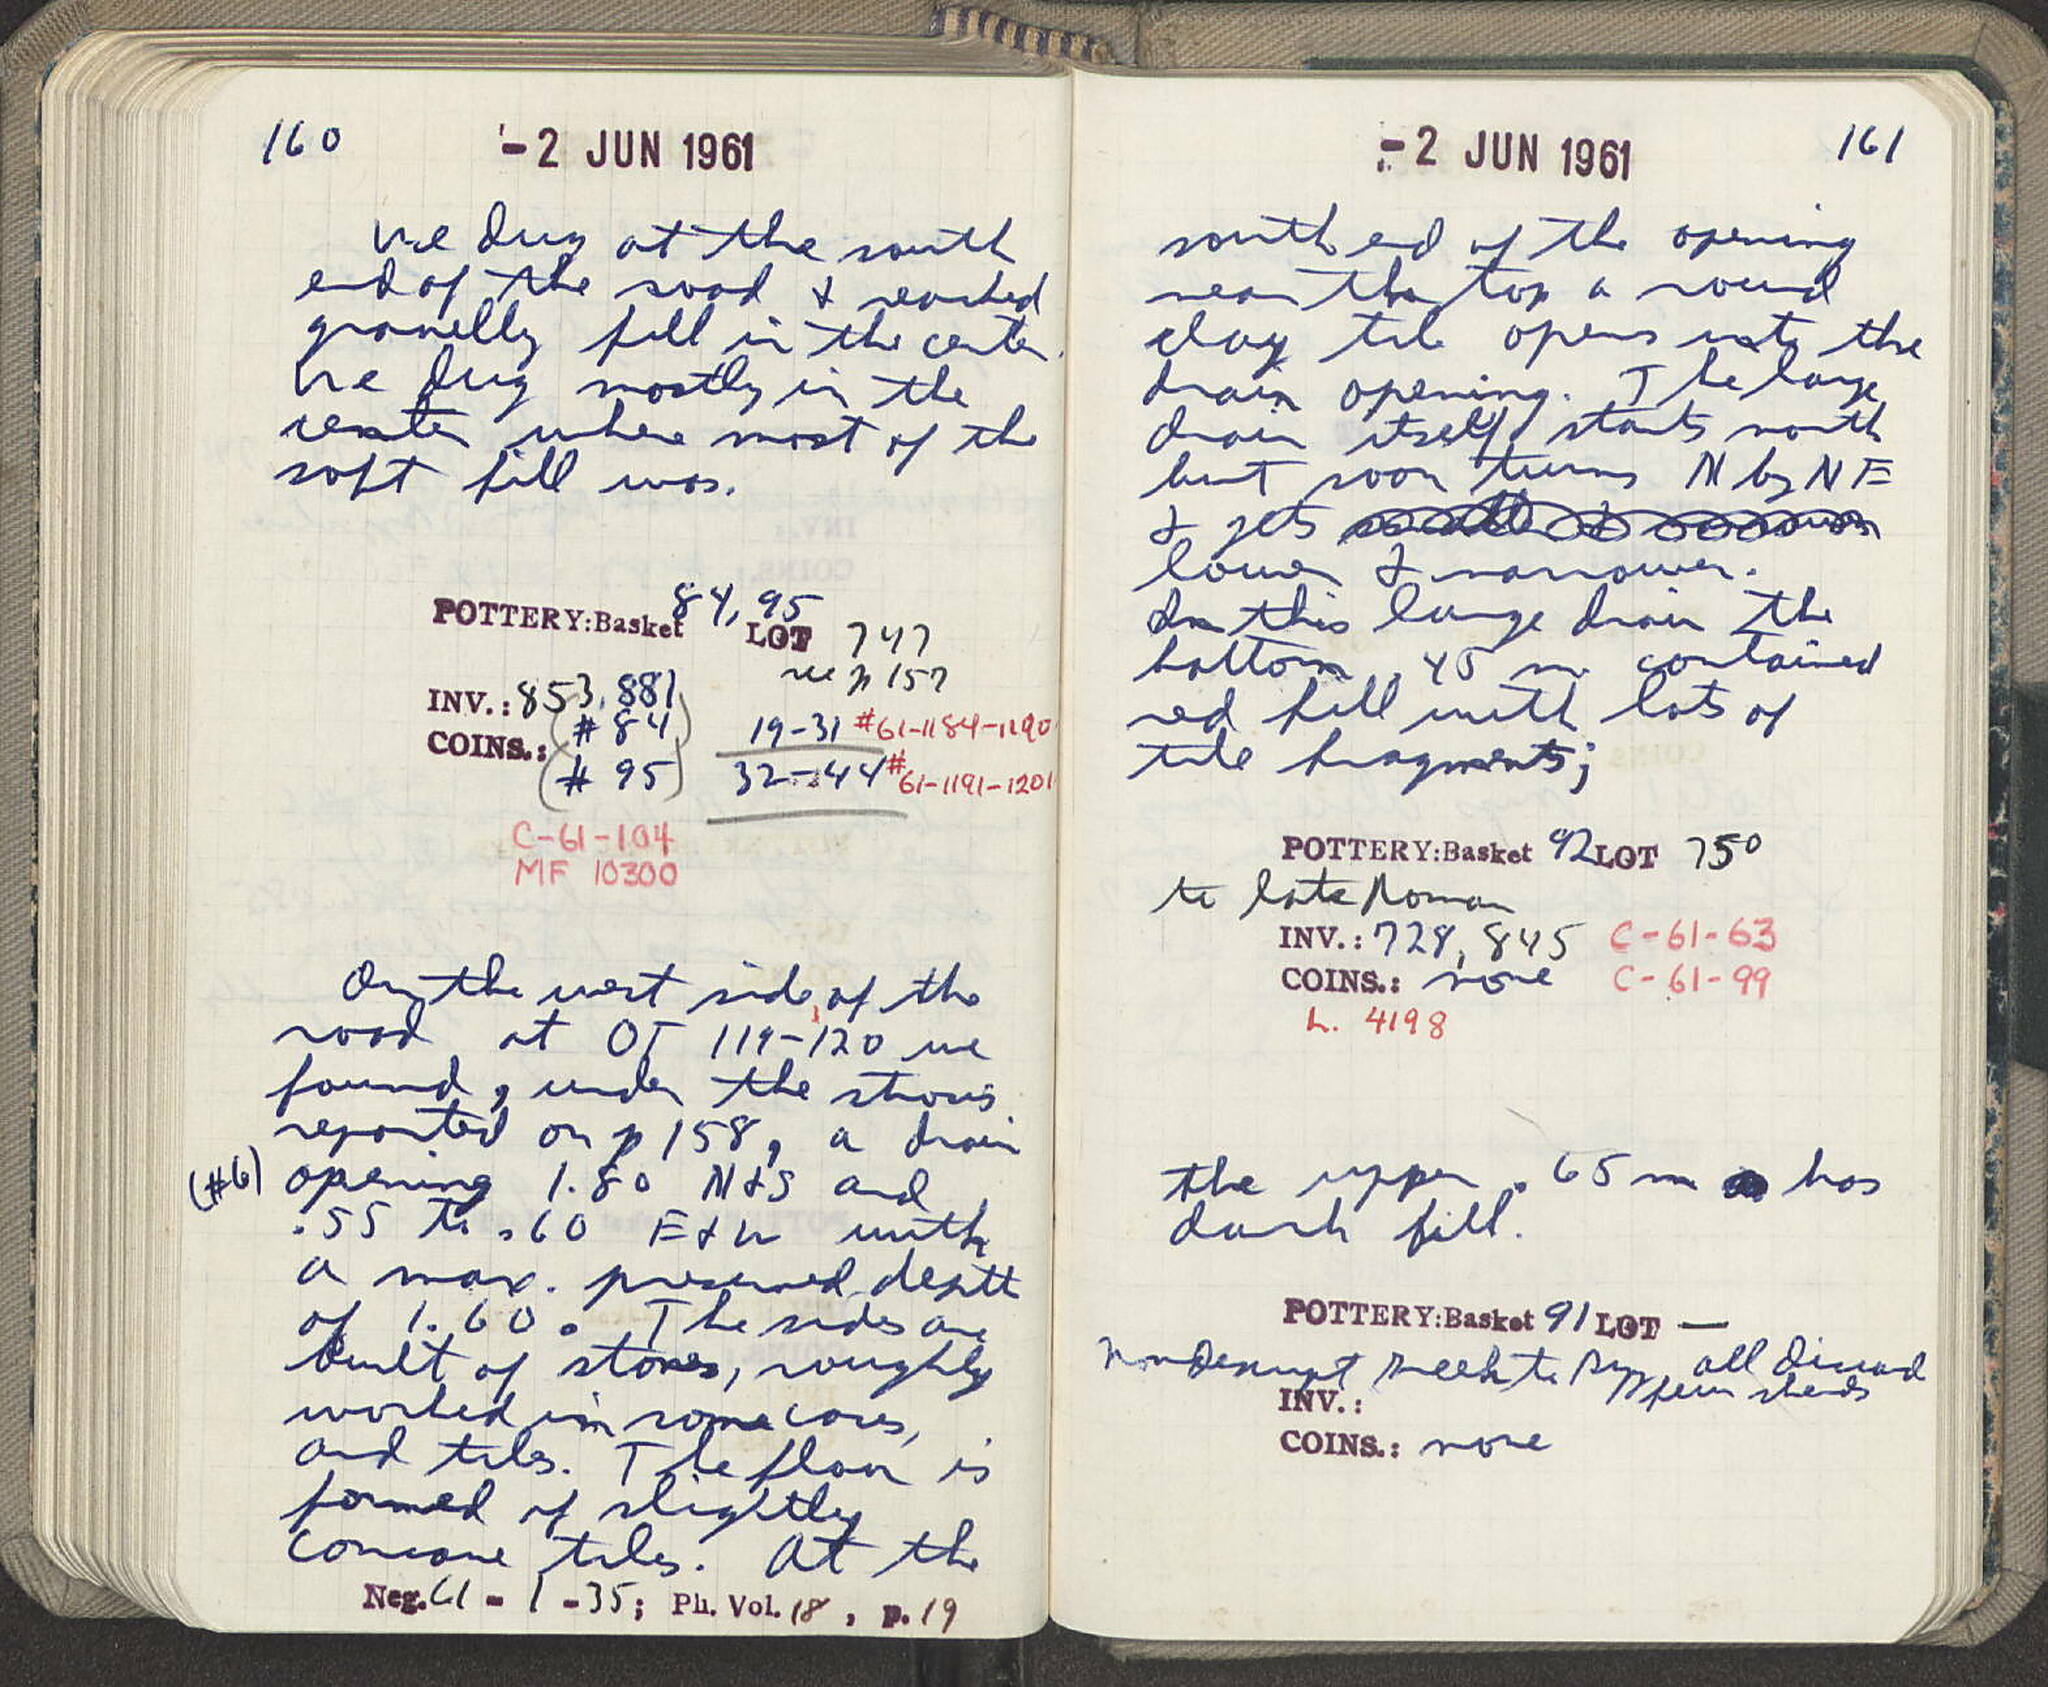 160
-2 JUN 1961
We dug at the south
end of the road & reached
gravelly fill in the center.
We dug mostly in the
center where most of the
soft fill was.
POTTERY: Basket 84, 95 LOT 747
see p 157
INV.: 853, 881
COINS.: (# 84) 19-31 #61-1184-1190
(# 95) 32-44 #61-1191-1201
C-61-104
MF 10300
On the west side of the
road at OT 119-120 we
found, under the strosis
reported on p 158, a drain
(#6) opening 1.80 N&S and
.55 to .60 E&W with
a max. preserved depth
of 1.60. The sides are
built of stones, roughly
worked in some cases,
and tiles. The floor is
formed of slightly
concave tiles. At the
Neg. 61 - 1 - 35; Ph. Vol. 18, p. 19
161
-2 JUN 1961
south end of the opening
near the top a round
clay tile opens into the
drain opening. The large
drain itself starts north
but soon turns N by NE
& gets
lower & narrower.
In this large drain the
bottom .45 m. contained
red fill with lots of
tile fragments;
POTTERY: Basket 92 LOT 750
to late Roman
INV.: 728, 845 C-61-63
COINS.: none C-61-99
L. 4198
the upper .65 m has
dark fill.
POTTERY: Basket 91 LOT —
Nondescript Greek to Byz all discard
few sherds
INV.:
COINS.: none